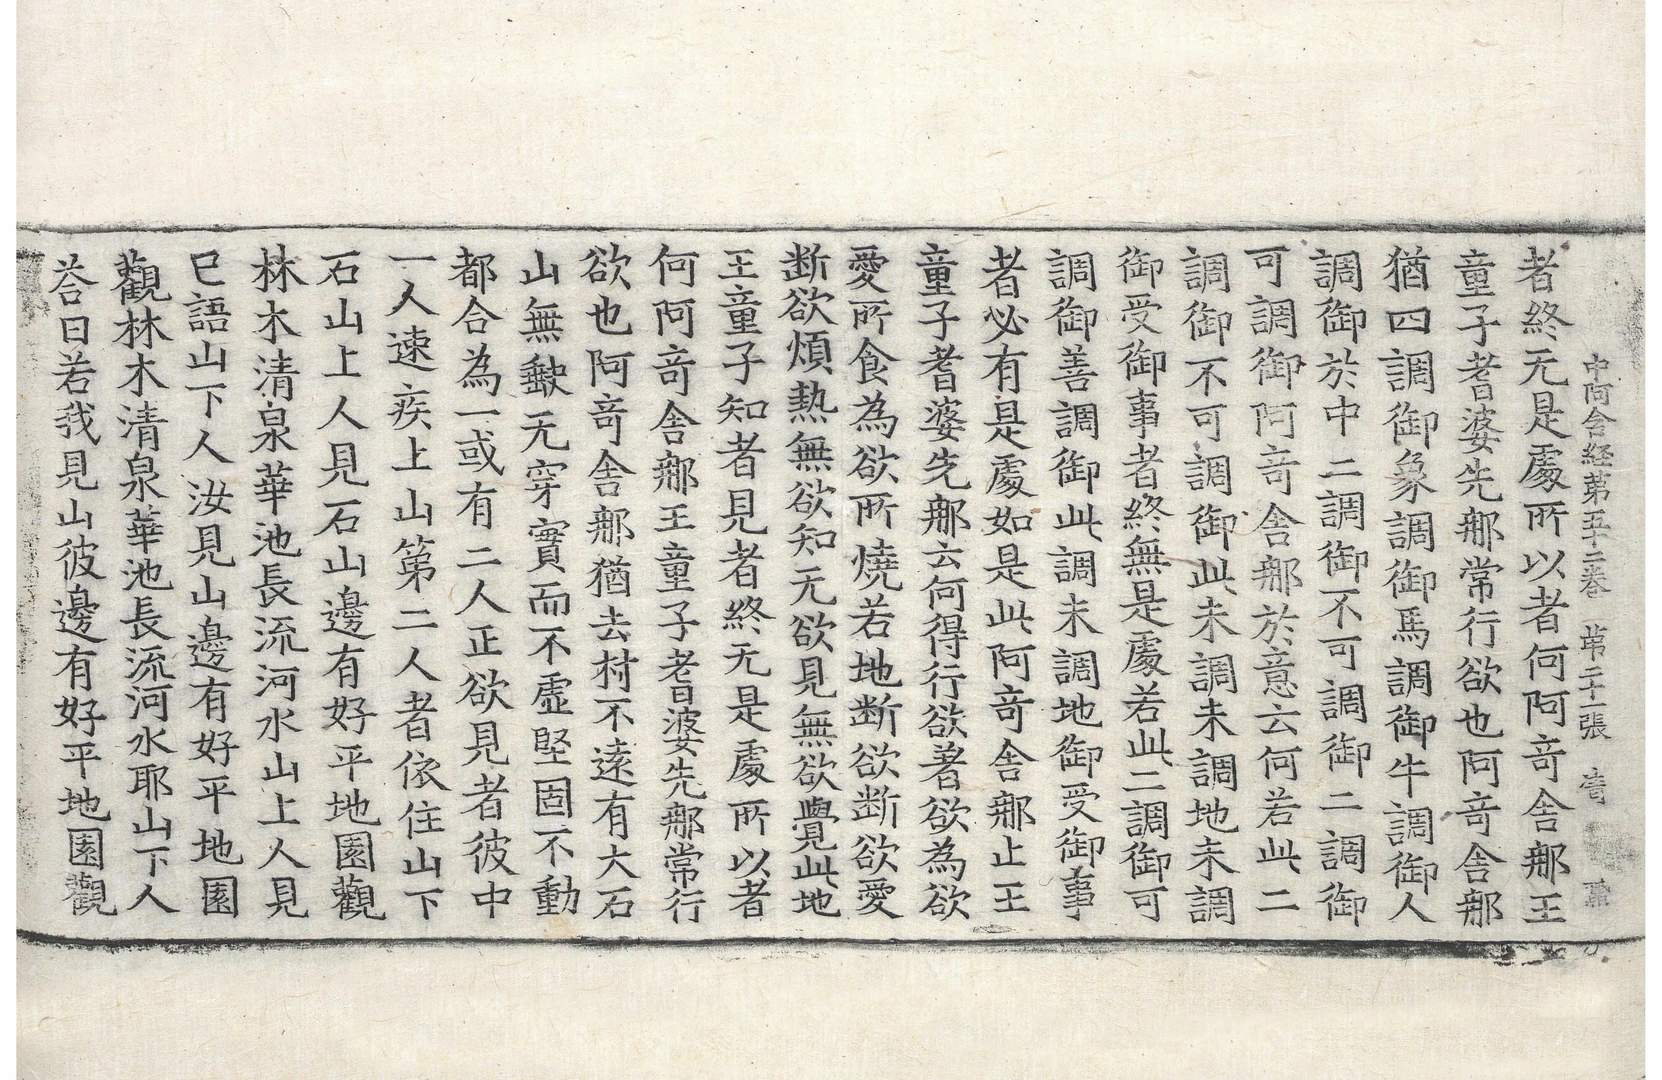 中阿含経第五十二巻 第二十一張
者終无是處所以者何阿竒舍𨚗王
童子耆婆先𨚗常行欲也阿竒舍𨚗
猶四調御象調御馬調御牛調御人
調御於中二調御不可調御二調御
可調御阿竒舍𨚗於意云何若此二
調御不可調御此未調未調地未調
御受御事者終無是處若此二調御可
調御善調御此調未調地御受御事
者必有是處如是此阿竒舍𨚗止王
童子耆婆先𨚗云何得行欲著欲為欲
愛所食為欲所燒若地断欲断欲愛
断欲煩熱無欲知无欲見無欲覺此地
王童子知者見者終无是處所以者
何阿竒舍𨚗王童子耆婆先𨚗常行
欲也阿竒舍𨚗猶去村不逺有大石
山無𡙇无穿實而不虛堅固不動
都合為一或有二人正欲見者彼中
一人速疾上山第二人者依住山下
石山上人見石山邊有好平地園觀
林木清泉華池長流河水山上人見
已語山下人汝見山邊有好平地園
觀林木清泉華池長流河水耶山下人
荅曰若我見山彼邊有好平地園觀